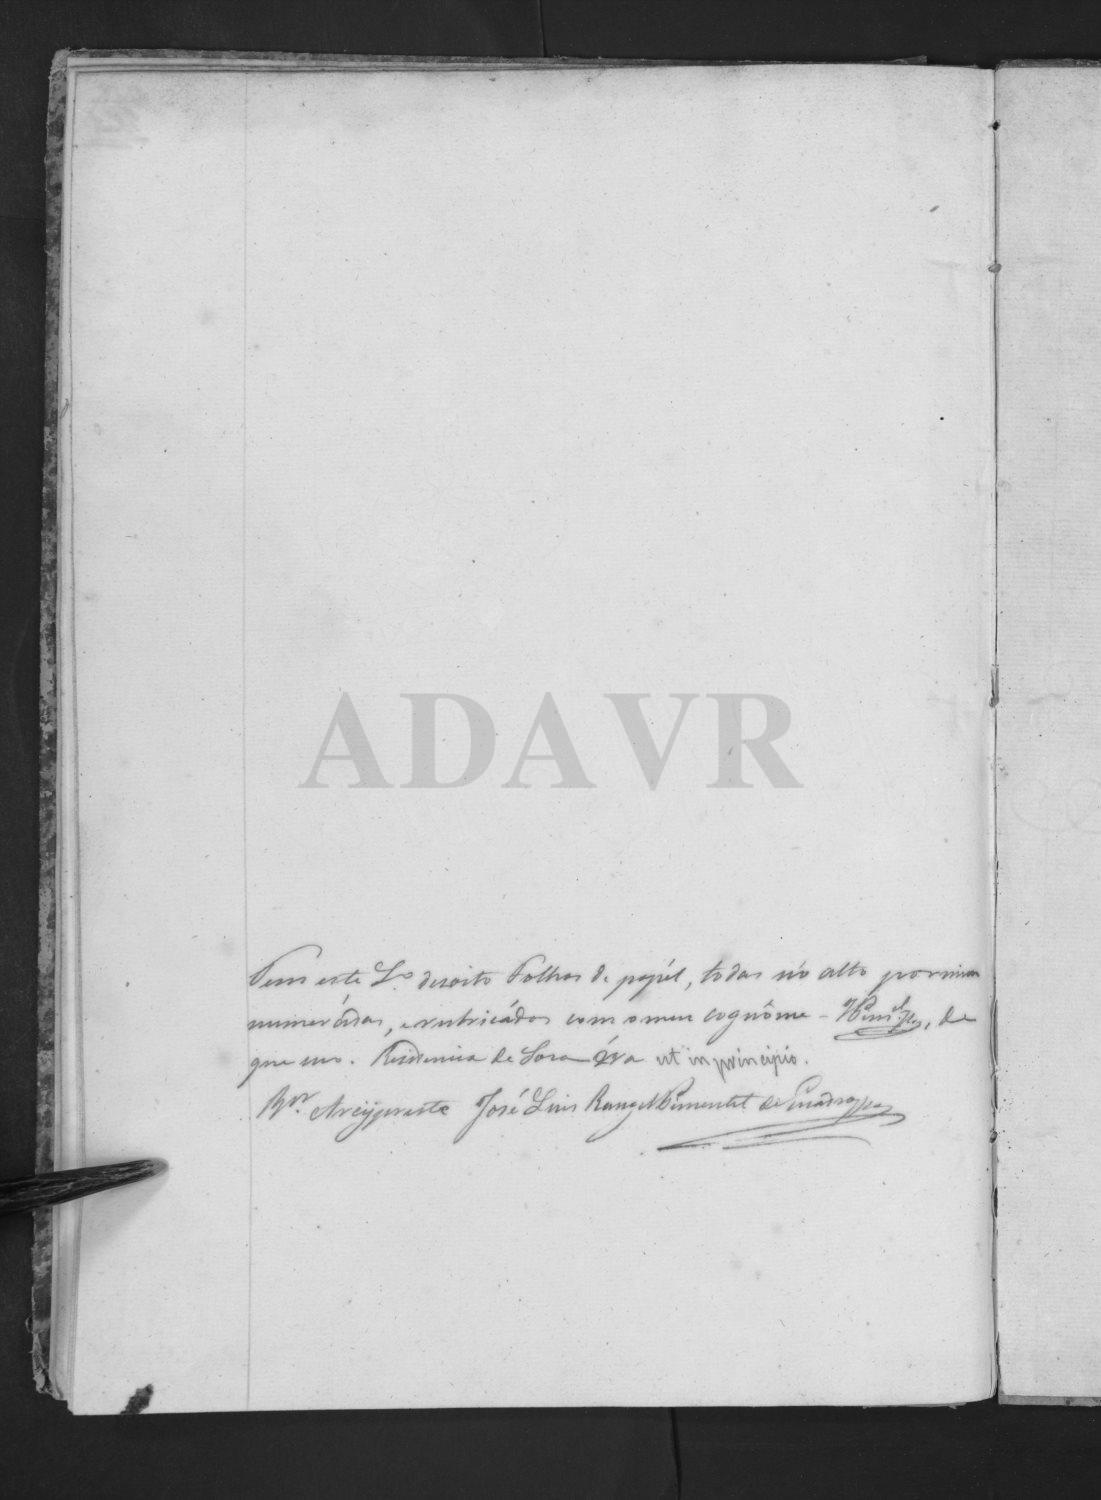 ADAVR
Tem este L.o desoito Folhas de papél, todas nó alto por mim
numerádas, e rubricádas com o meu cognôme - Pim.el, de
que uso. Residencia de ut in principio.
Arcypreste José Luis Rangel Pimentel de Quadros